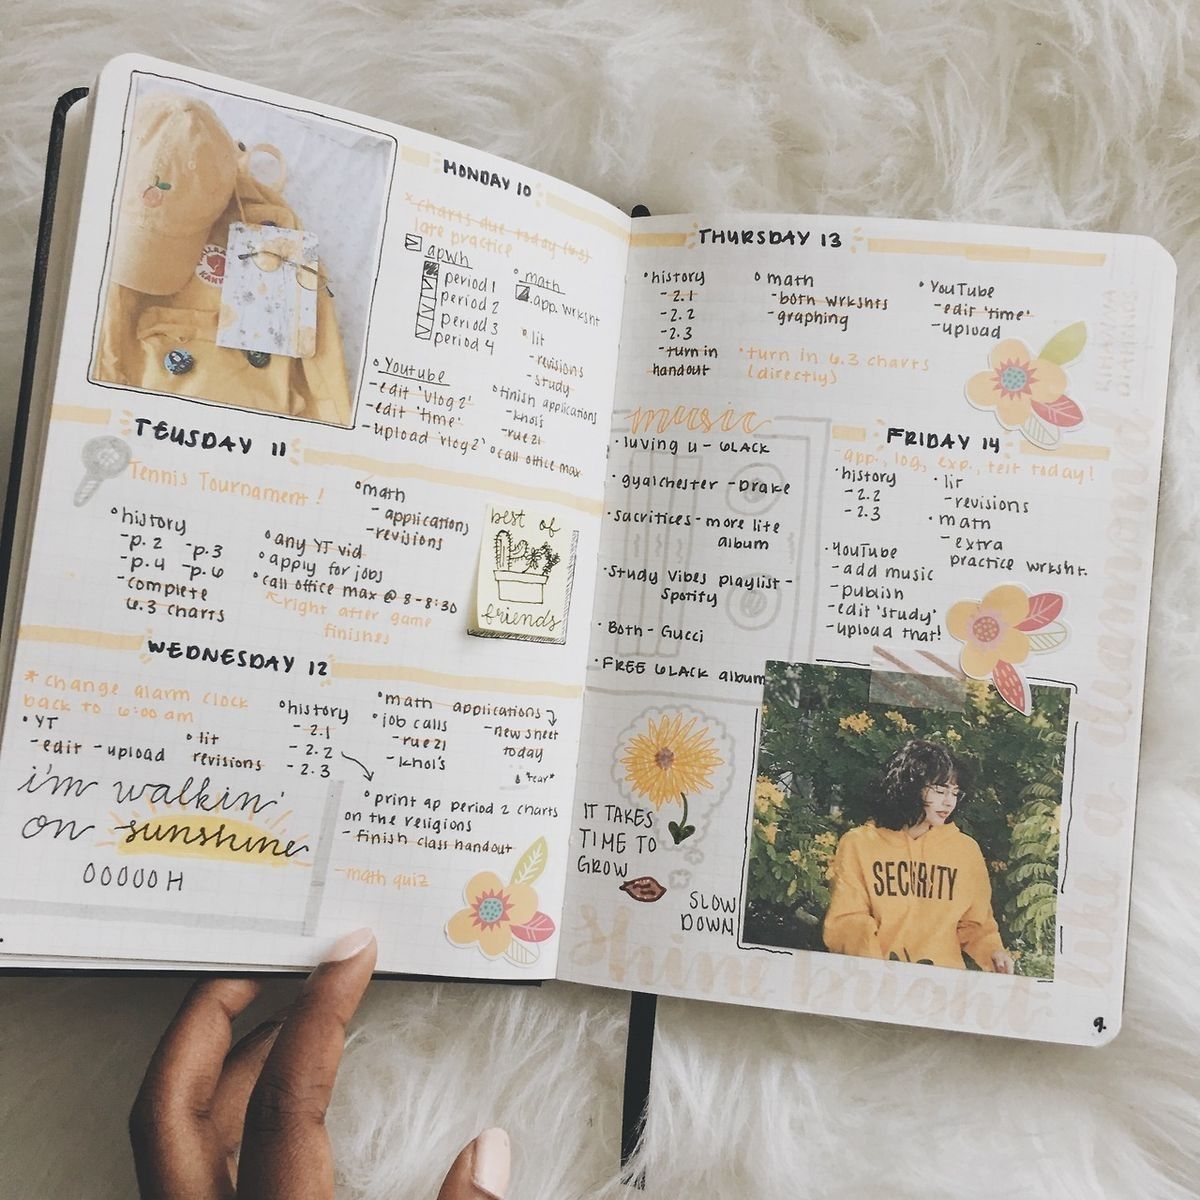 MONDAY 10
* charts due today (6.3)
late practice
apwh
period 1
period 2
period 3
period 4
math
app. wrksht
lit
- revisions
- study
Youtube
- edit 'vlog 2'
- edit 'time'
- upload 'vlog 2'
finish applications
- khol's
- rue 21
call office max
TEUSDAY 11
Tennis Tournament!
history
- p. 2 - p. 3
- p. 4 - p. 6
- complete
6.3 charts
math
- applications
- revisions
any YT vid
apply for jobs
call office max @ 8-8:30
right after game
finishes
best of
friends
WEDNESDAY 12
* change alarm clock
back to 6:00 am
YT
- edit - upload
lit
revisions
history
- 2.1
- 2.2
- 2.3
math applications
- new sheet
today
job calls
- rue 21
- khol's
*tear*
print ap period 2 charts
on the religions
- finish class handout
- math quiz
i'm walkin'
on sunshine
OOOOO H
THURSDAY 13
history
- 2.1
- 2.2
- 2.3
- turn in
handout
math
- both wrkshts
- graphing
YouTube
- edit 'time'
- upload
* turn in 6.3 charts
(directly)
music
luving u - 6LACK
gyalchester - Drake
sacrifices - more life
album
Study Vibes playlist -
Spotify
Both - Gucci
FREE 6LACK album
FRIDAY 14
- app., log, exp., test today!
history
- 2.2
- 2.3
lit
- revisions
math
- extra
practice wrksht.
YouTube
- add music
- publish
- edit 'study'
- upload that!
IT TAKES
TIME TO
GROW
SLOW
DOWN
SECURITY
shine bright
like a diamond
9.